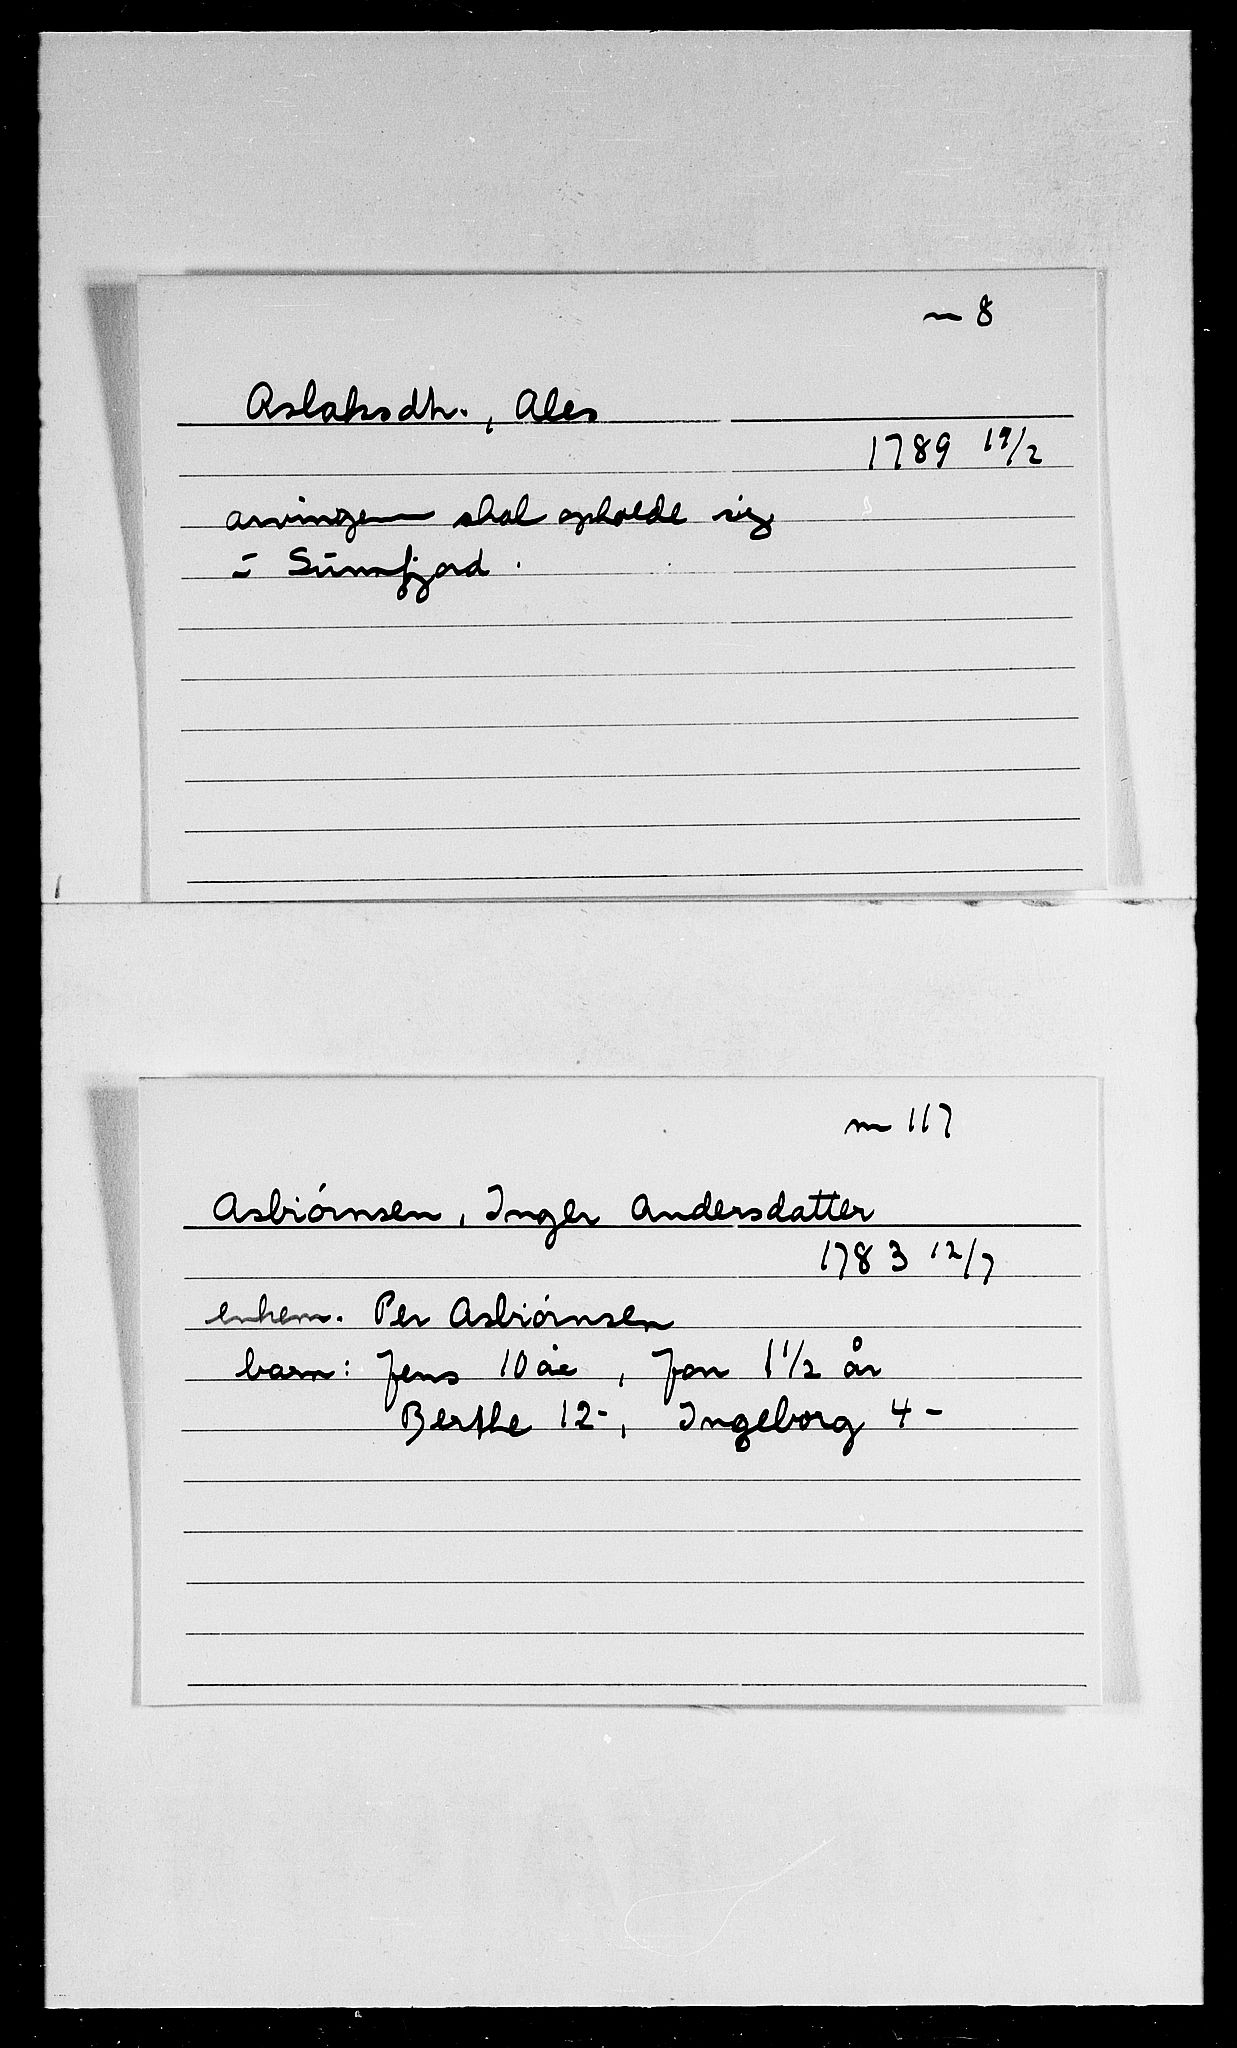 m 8
Aslaksdtr., Ales
1789 19/2
arvingen skal opholde sig
i Sunnfjord.
m 117
Asbiórnsen, Inger Andersdatter
1783 12/7
enkem. Per Asbiórnsen
barn: Jens 10 år, Jon 1 1/2 år
Berthe 12-, Ingeborg 4-